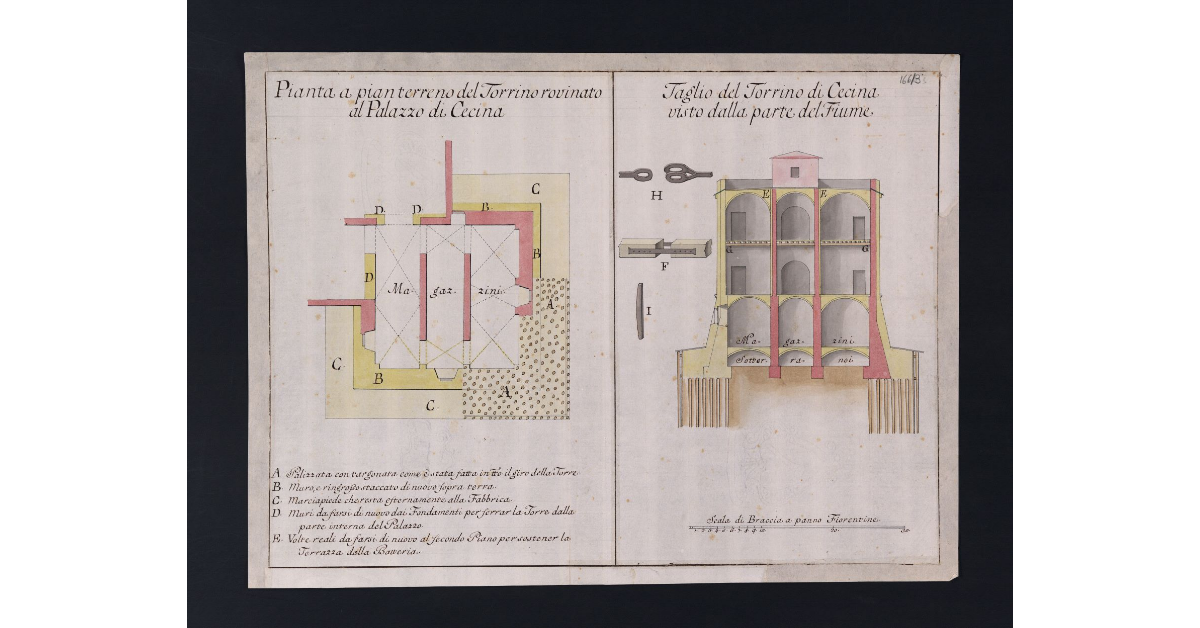 Pianta a pian terreno del Torrino rovinato
al Palazzo di Cecina
C
D. D. B.
B
D Ma- gaz- zini.
A
C
B
A
C
A Palizzata con targonata come è stata fatta in tto il giro della Torre
B Muro, e ringrosso staccato di nuovo sopra terra.
C. Marciapiede che resta esternamente alla Fabbrica.
D. Muri da farsi di nuovo dai Fondamenti per serrar la Torre dalla
parte interna del Palazzo
E. Volte reali da farsi di nuovo al secondo Piano per sostener la
Terrazza della Batteria.
Taglio del Torrino di Cecina
visto dalla parte del Fiume.
H
E E
G G
F
I
Ma- gaz- zini
Sotter- ra- nei
Scala di Braccia a panno Fiorentine.
1 2 3 4 5 6 7 8 9 10 20 30